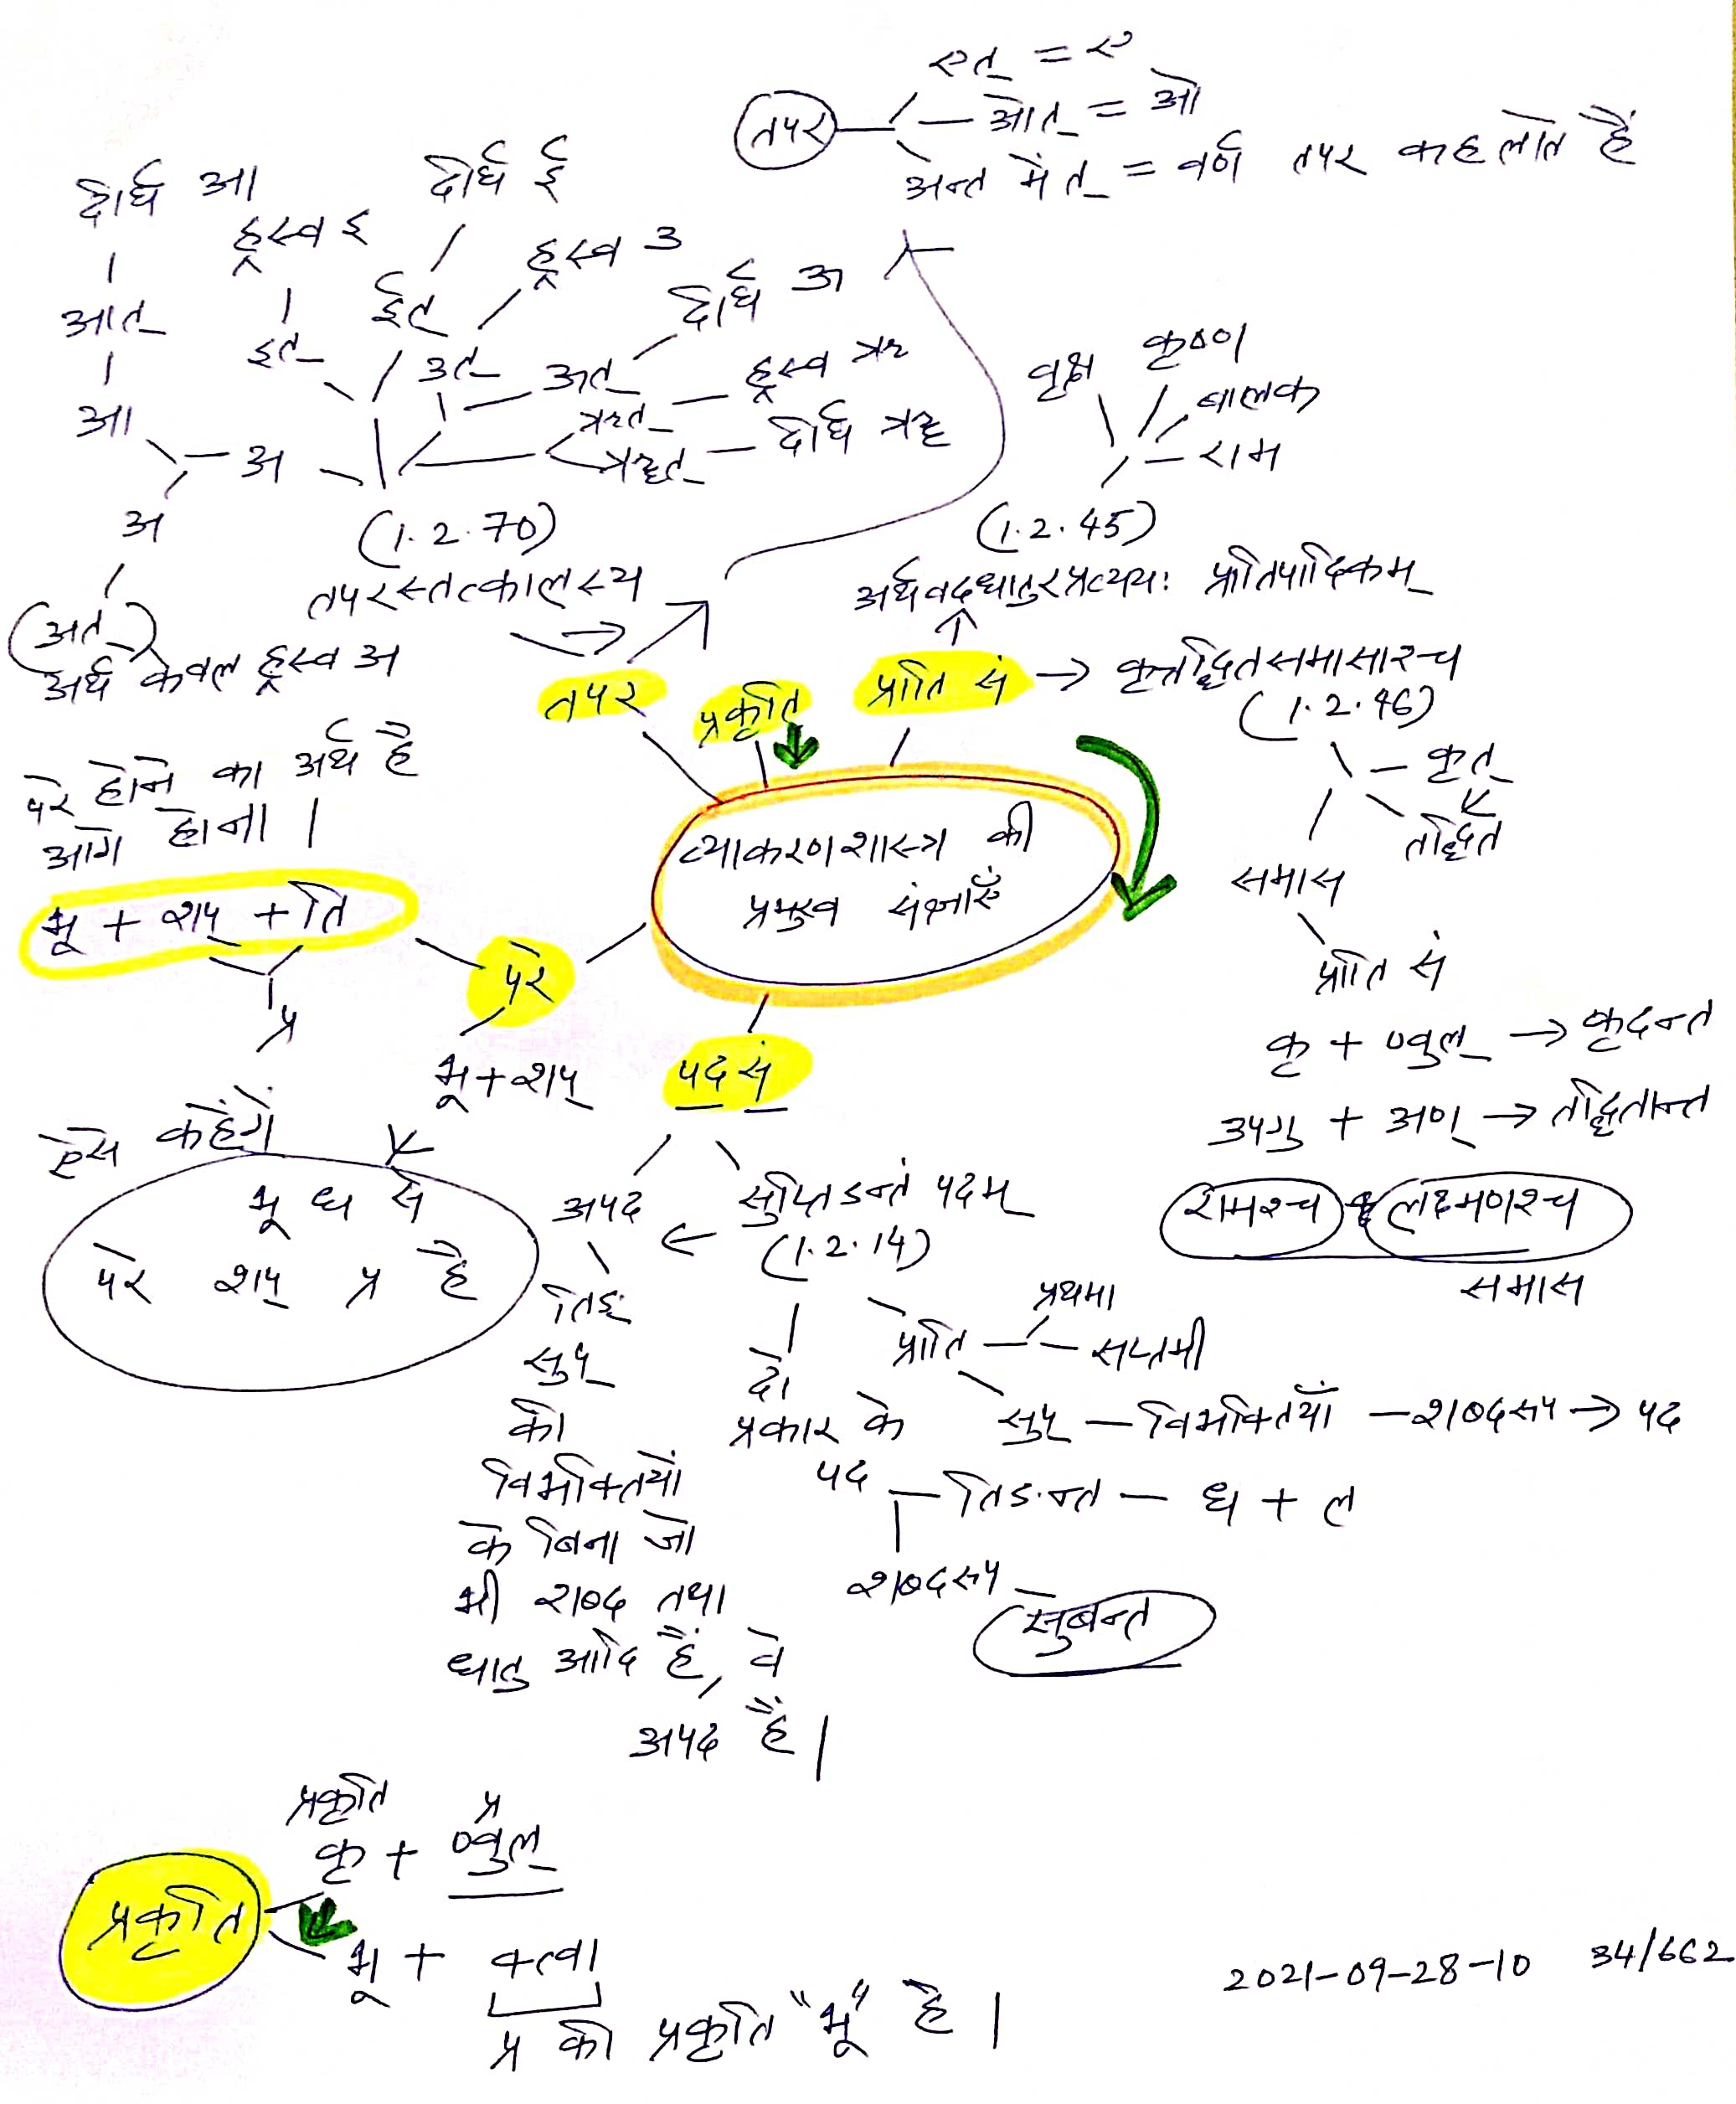 तपर
एत् = ए
ओत् = ओ
अन्त में त् = वर्ण तपर कहलाते हैं
दीर्घ आ
ह्रस्व इ
दीर्घ ई
ह्रस्व उ
दीर्घ ऊ
आत्
इत्
ईत्
उत्
ऊत्
ऋत् — ह्रस्व ऋ
ॠत् — दीर्घ ॠ
आ
अ
अ
(अत्)
अर्थ केवल ह्रस्व अ
(1.2.70)
तपरस्तत्कालस्य
वृक्ष
कृष्ण
बालक
राम
(1.2.45)
अर्थवदधातुरप्रत्ययः प्रातिपादिकम्
तपर
प्रकृति
प्राति सं → कृत्तद्धितसमासाश्च
(1.2.46)
कृत्
तद्धित
समास
प्राति सं
कृ + ण्वुल् → कृदन्त
उपगु + अण् → तद्धितान्त
रामश्च + लक्ष्मणश्च
समास
व्याकरणशास्त्र की
प्रमुख संज्ञाएँ
परे होने का अर्थ है
आगे होना |
भू + शप् + ति
प्र
परे
भू + शप्
ऐसे कहेंगे
भू ध से
परे शप् प्र है
पद सं
अपद
सुप्तिङन्तं पदम्
(1.2.14)
तिङ्
सुप्
की
विभक्तियों
के बिना जो
भी शब्द तथा
धातु आदि हैं, वे
अपद हैं |
दो
प्रकार के
पद
प्राति
प्रथमा
सप्तमी
सुप् — विभक्तियाँ — शब्दरूप → पद
तिङन्त — ध + ल
शब्दरूप
सुबन्त
प्रकृति
प्रकृति प्र
कृ + ण्वुल्
भू + क्त्वा
प्र की प्रकृति "भू" है |
2021-09-28-10 34/662